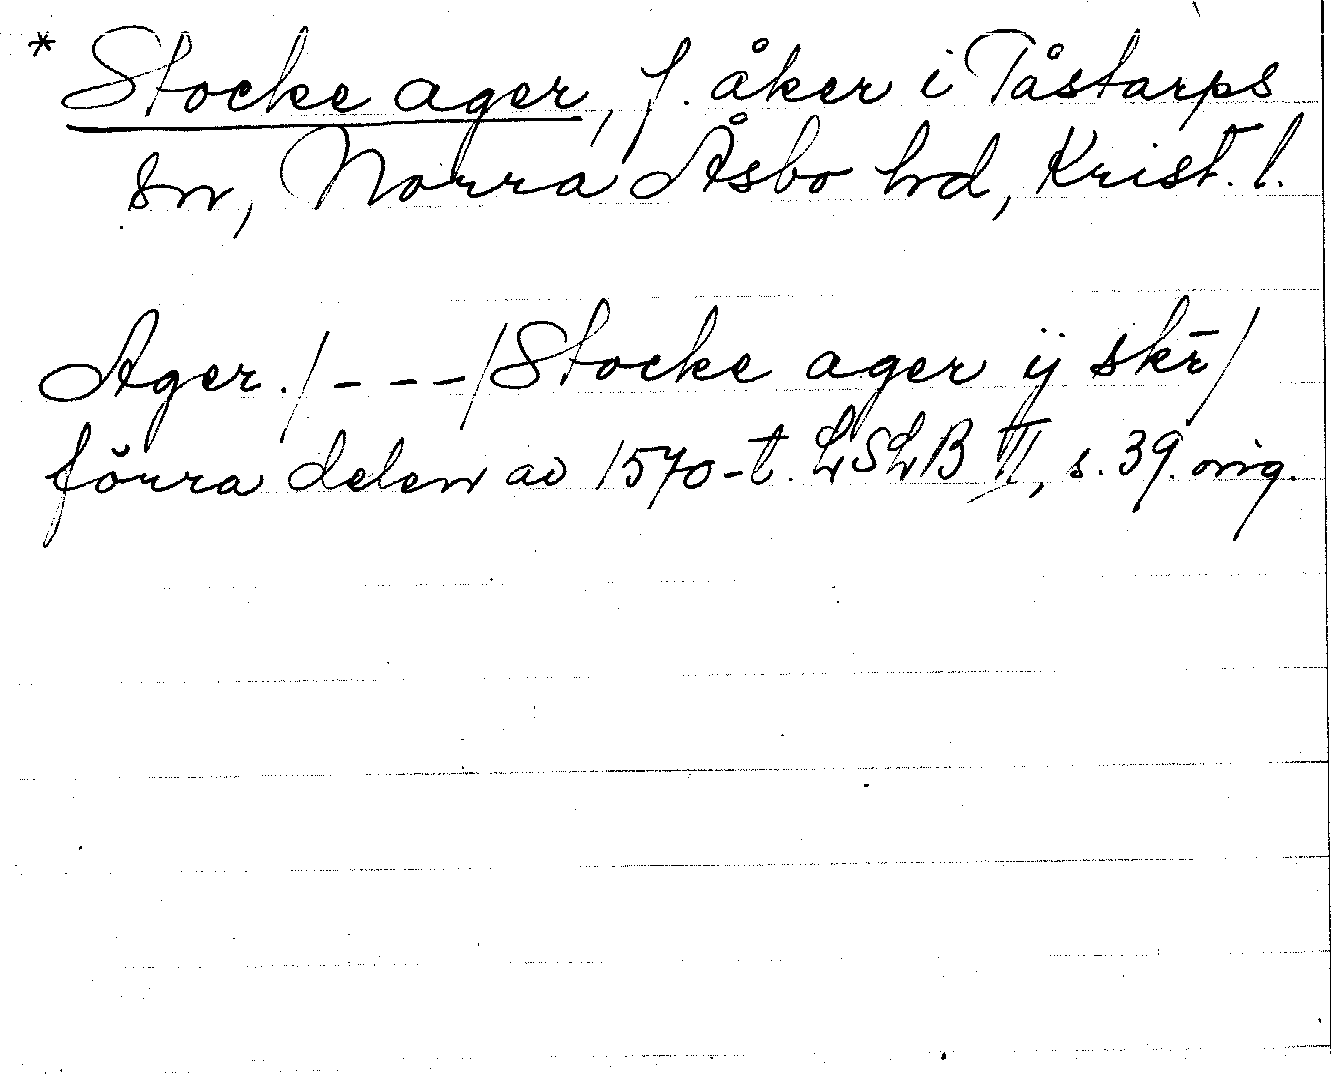 * Stocke ager, f. åker i Tåstarps
sn, Norra Åsbo hd, Krist. l.
Ager./---/Stocke ager ij skr̄/
förra delen av 1570-t. LSLB II, s. 39. orig.